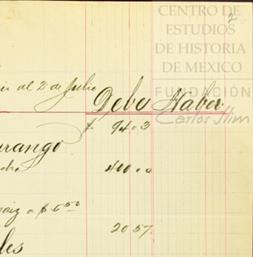 CENTRO DE
ESTUDIOS
DE HISTORIA
DE MEXICO
FUNDACIÓN
Carlos Slim
2
al 2 de Julio
Debe Haber
$ 94 03
urango
400 00
maiz a $ 6 50
20 57
les